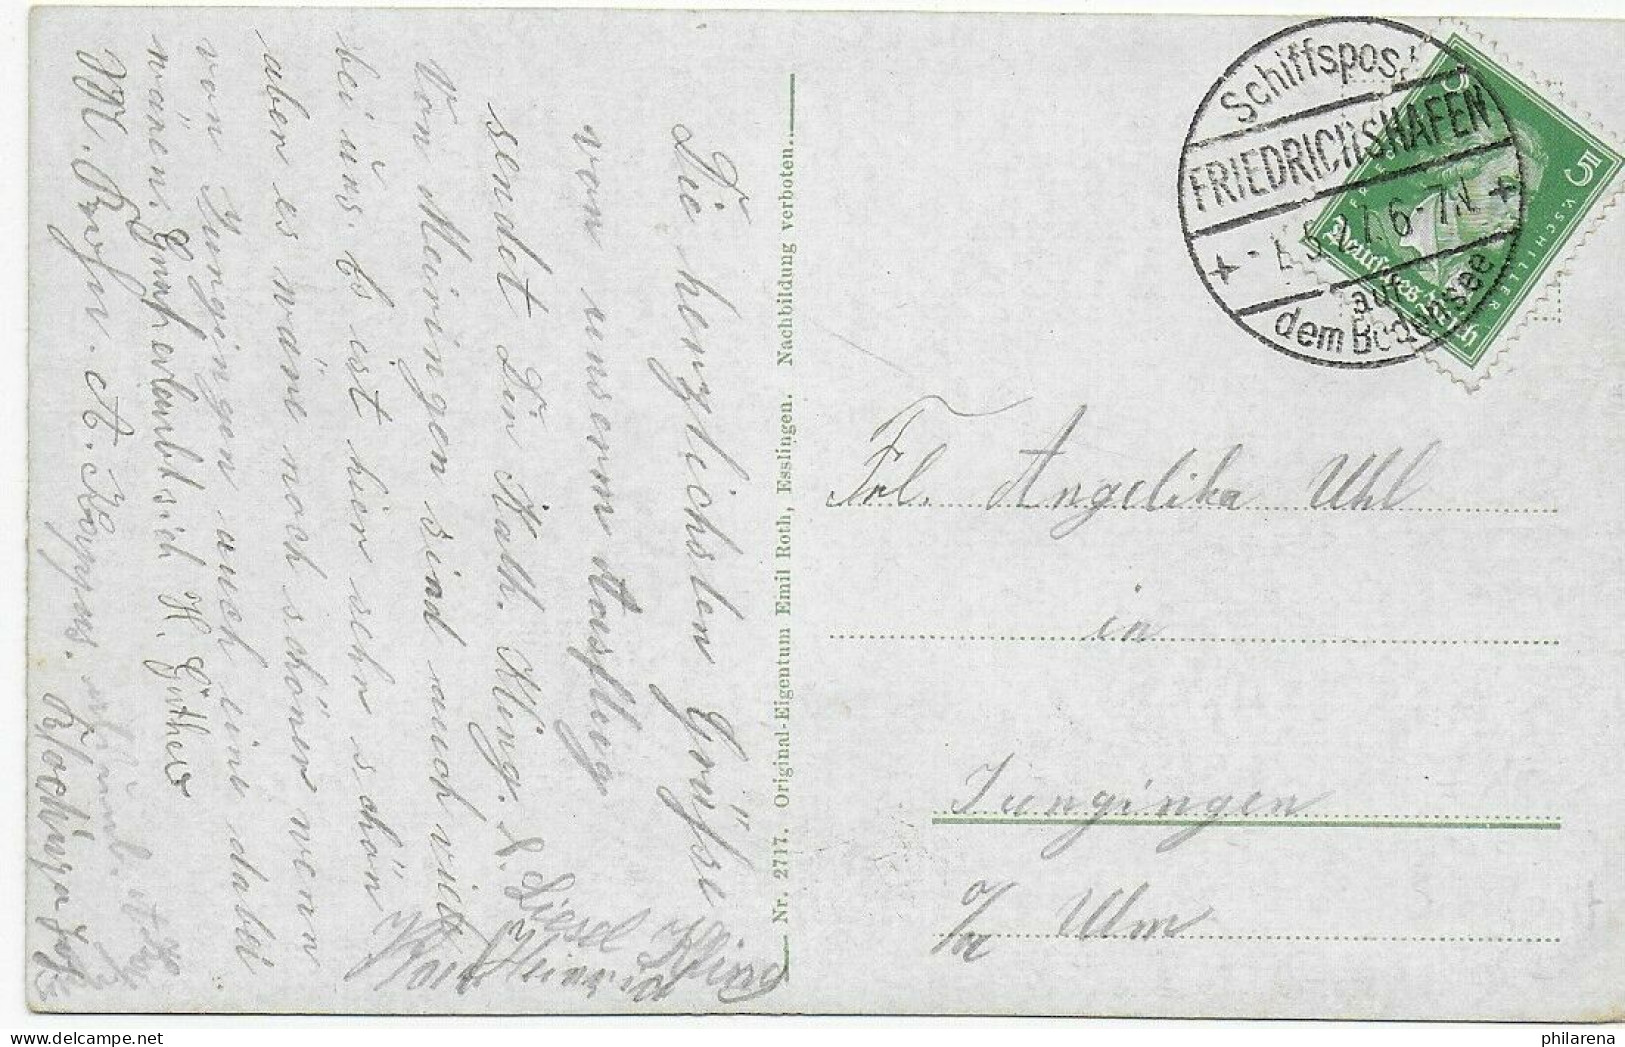 Die herzlichsten Grüsse
von unserm Ausflug
sendet Dir Kath. Kling.
Von Meiringen sind auch viele
bei uns. Es ist hier sehr schön
aber es wäre noch schöner wenn
von Jungingen auch eine dabei
wären.
H. Güther
Kling
Nr. 2717. Original-Eigentum Emil Roth, Esslingen. Nachbildung verboten.
Schiffspost
FRIEDRICHSHAFEN
5.27. 6-7N
auf
dem Bodensee
5
5
V. SCHILLER
Deutsches Reich
Frl. Angelika Uhl
in
Jungingen
a/ Ulm
philarena.com